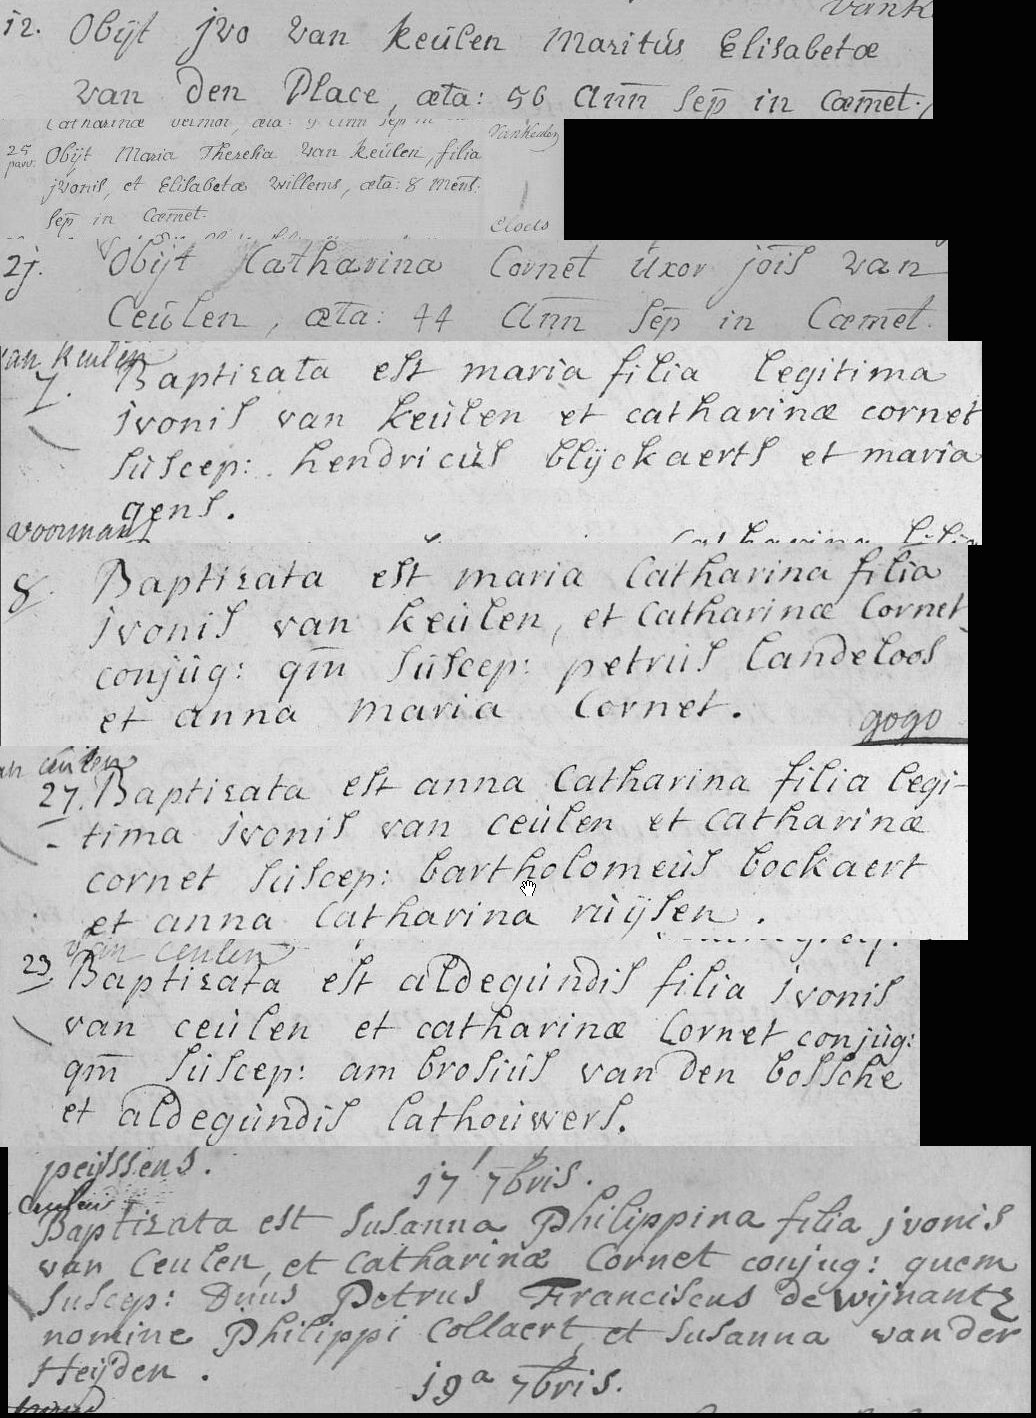 12. Obijt jvo van Keulen Maritus Elisabetæ
van den Place, æta: 56 Ann̅ Sep̅ in Cœmet.
Catharinæ
25 parv. Obijt Maria Theresia van Keulen, filia
jvonis, et Elisabetæ Willems, æta: 8 mens.
Sep̅ in Cœmet.
Cloets
21. Obijt Catharina Cornet uxor jōis van
Ceulen, æta: 44 Ann̅ Sep̅ in Cœmet.
van Keulen
7. Baptizata est maria filia legitima
jvonis van keulen et catharinæ cornet
suscep: hendricus blijckaerts et maria
gens.
voorman
8. Baptizata est maria Catharina filia
jvonis van Keulen, et Catharinæ Cornet
conjug: qm̅ suscep: petrus Landeloos
et anna maria Cornet.
gogo
van ceulen
27. Baptizata est anna Catharina filia legi-
tima jvonis van ceulen et catharinæ
cornet suscep: bartholomeus bockaert
et anna Catharina ruijsen.
van ceulen
23. Baptizata est aldegundis filia jvonis
van ceulen et catharinæ Cornet conjug:
qm̅ suscep: ambrosius van den bossche
et aldegundis Lathouwers.
peijssens.
17 7bris.
Ceulen
Baptizata est Susanna Philippina filia jvonis
van Ceulen, et Catharinæ Cornet conjug: quem
suscep: Dnus Petrus Franciscus de wijnantz
nomine Philippi Collaert, et Susanna van der
Heijden.
19ª 7bris.